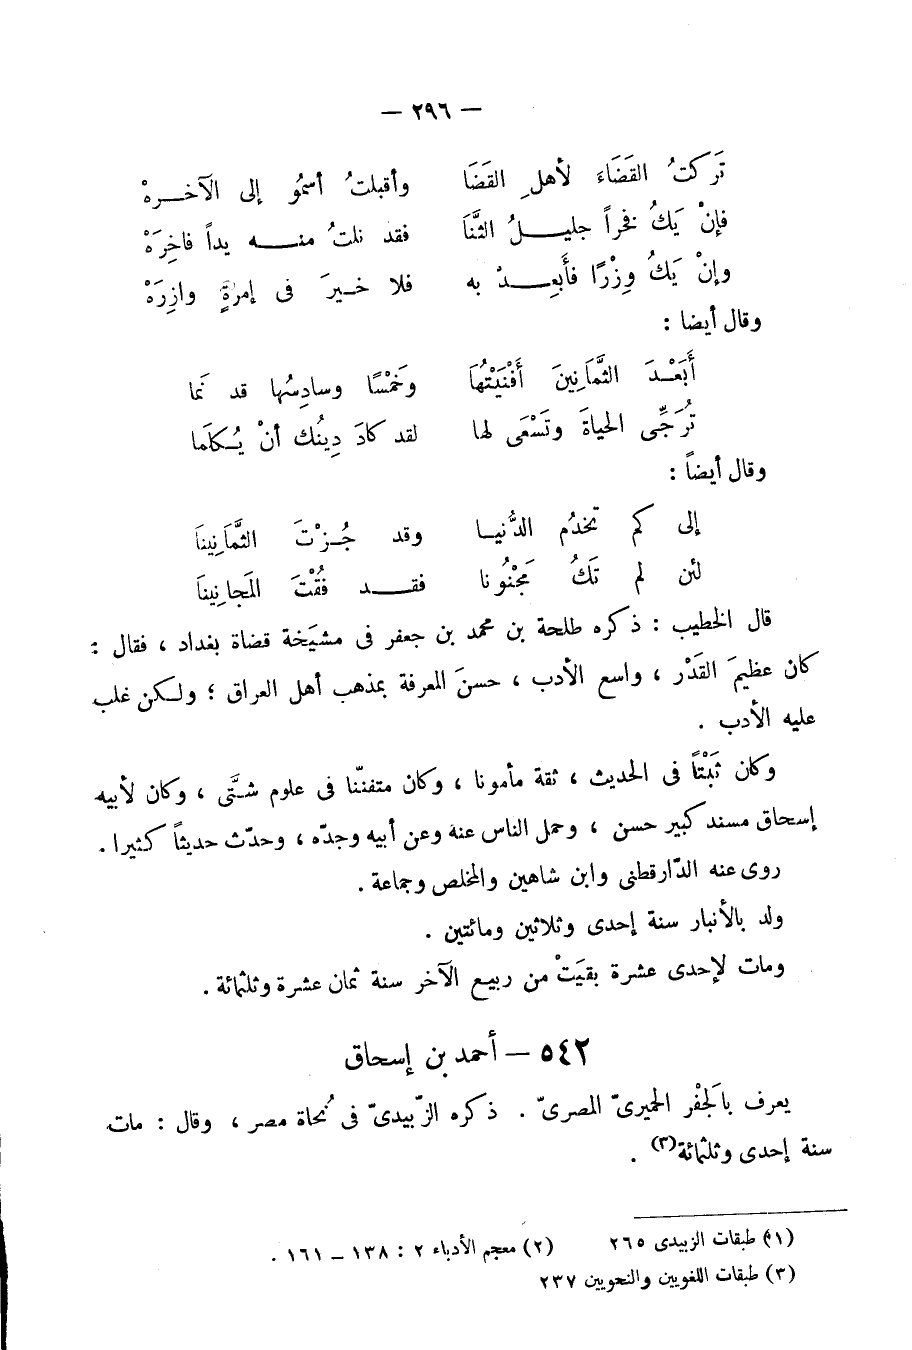 — ٢٩٦ —
تَركتُ القَضَاءَ لأهلِ القَضَا وأقبلتُ أسمُو إلى الآخـــرهْ
فإنْ يَكُ فخراً جليـــلُ الثَّنَا فقد نلتُ منـــه يداً فاخِرَهْ
وإنْ يَكُ وِزْرًا فأَبعِـــدْ به فلا خـيرَ فى إمرةٍ وازِرَهْ
وقال أيضا :
أَبَعْـدَ الثَّمَانِينَ أَفْنَيْتُهَا وخَمْسًا وسادِسُها قد نَما
تُرَجِّى الحياةَ وتَسْعَى لها لقد كادَ دِينُك أنْ يُـكلَما
وقال أيضاً :
إلى كم تخدُم الدُّنيـا وقد جُـزْتَ الثَّمَانِيناَ
لئن لم تَكُ مَجْنُونا فقـــد فُقْتَ المَجانِيناَ
قال الخطيب : ذكره طلحة بن محمد بن جعفر فى مشيَخة قضاة بغداد ، فقال :
كان عظيمَ القَدْر ، واسع الأدب ، حسنَ المعرفة بمذهب أهل العراق ؛ ولـكن غلب
عليه الأدب .
وكان ثَبْتاً فى الحديث ، ثقة مأمونا ، وكان متفنّنا فى علوم شـتَّى ، وكان لأبيه
إسحاق مسند كبير حسن ، وحمل الناس عنه وعن أبيه وجدّه ، وحدّث حديثاً كثيرا .
روى عنه الدّارقطنى وابن شاهين والمخلص وجماعة .
ولد بالأنبار سنة إحدى وثلاثين ومائتين .
ومات لإحدى عشرة بقيَتْ من ربيع الآخر سنة ثمان عشرة وثلثمائة .
٥٤٢ — أحمد بن إسحاق
يعرف بالجَفْر الحميرىّ المصرىّ . ذكره الزّبيدىّ فى نُحاة مصر ، وقال : مات
سنة إحدى وثلثمائة(٣) .
(١) طبقات الزبيدى ٢٦٥ (٢) معجم الأدباء ٢ : ١٣٨ – ١٦١ .
(٣) طبقات اللغويين والنحويين ٢٣٧